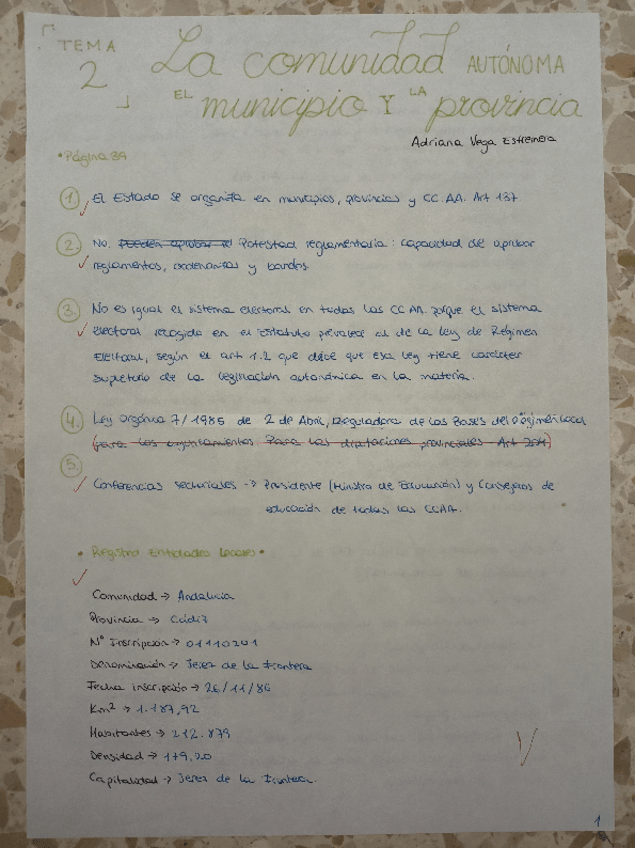 TEMA 2
La comunidad AUTÓNOMA
EL municipio Y LA provincia
Adriana Vega Estrenera
•Página 39
1. El Estado se organiza en municipios, provincias y CC.AA. Art 137
2. No. Pueden aprobar el Potestad reglamentaria: capacidad de aprobar
reglamentos, ordenanzas y bandos.
3. No es igual el sistema electoral en todas las CCAA porque el sistema
electoral recogido en el Estatuto prevalece al de la Ley de Régimen
Electoral, según el art 1.2 que dice que esa ley tiene carácter
supletorio de la legislación autonómica en la materia.
4. Ley Orgánica 7/1985 de 2 de Abril, Reguladora de las Bases del Régimen Local
(para los ayuntamientos. Para las diputaciones provinciales Art 204)
5.
Conferencias sectoriales -> Presidente (Ministra de Educación) y Consejeros de
educación de todas las CCAA.
• Registro Entidades Locales •
Comunidad -> Andalucía
Provincia -> Cádiz
Nº Inscripción -> 01110201
Denominación -> Jerez de la Frontera
Fecha inscripción -> 26/11/86
Km² -> 1.187,92
Habitantes -> 212.879
Densidad -> 179,20
Capitalidad -> Jerez de la Frontera.
1